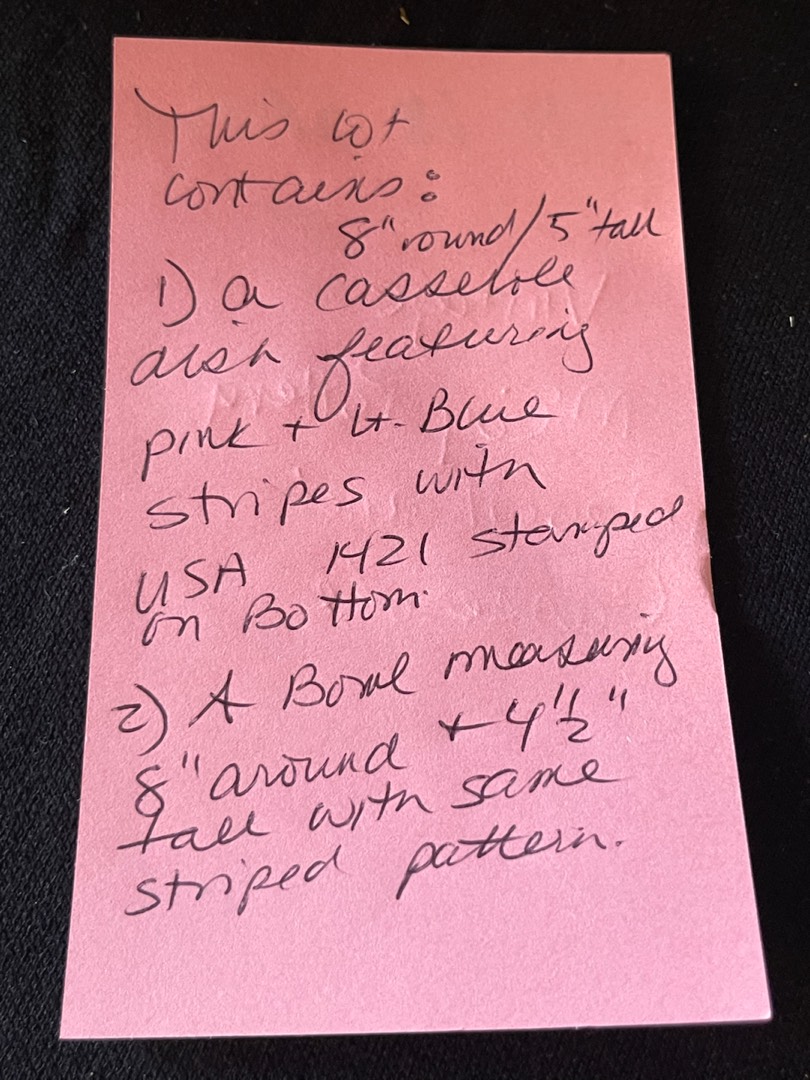 This lot
contains:
8" round/5" tall
1) a casserole
dish featuring
pink + Lt. Blue
stripes with
USA 1421 stamped
on Bottom.
2) A Bowl measuring
8" around + 4 1/2"
tall with same
striped pattern.